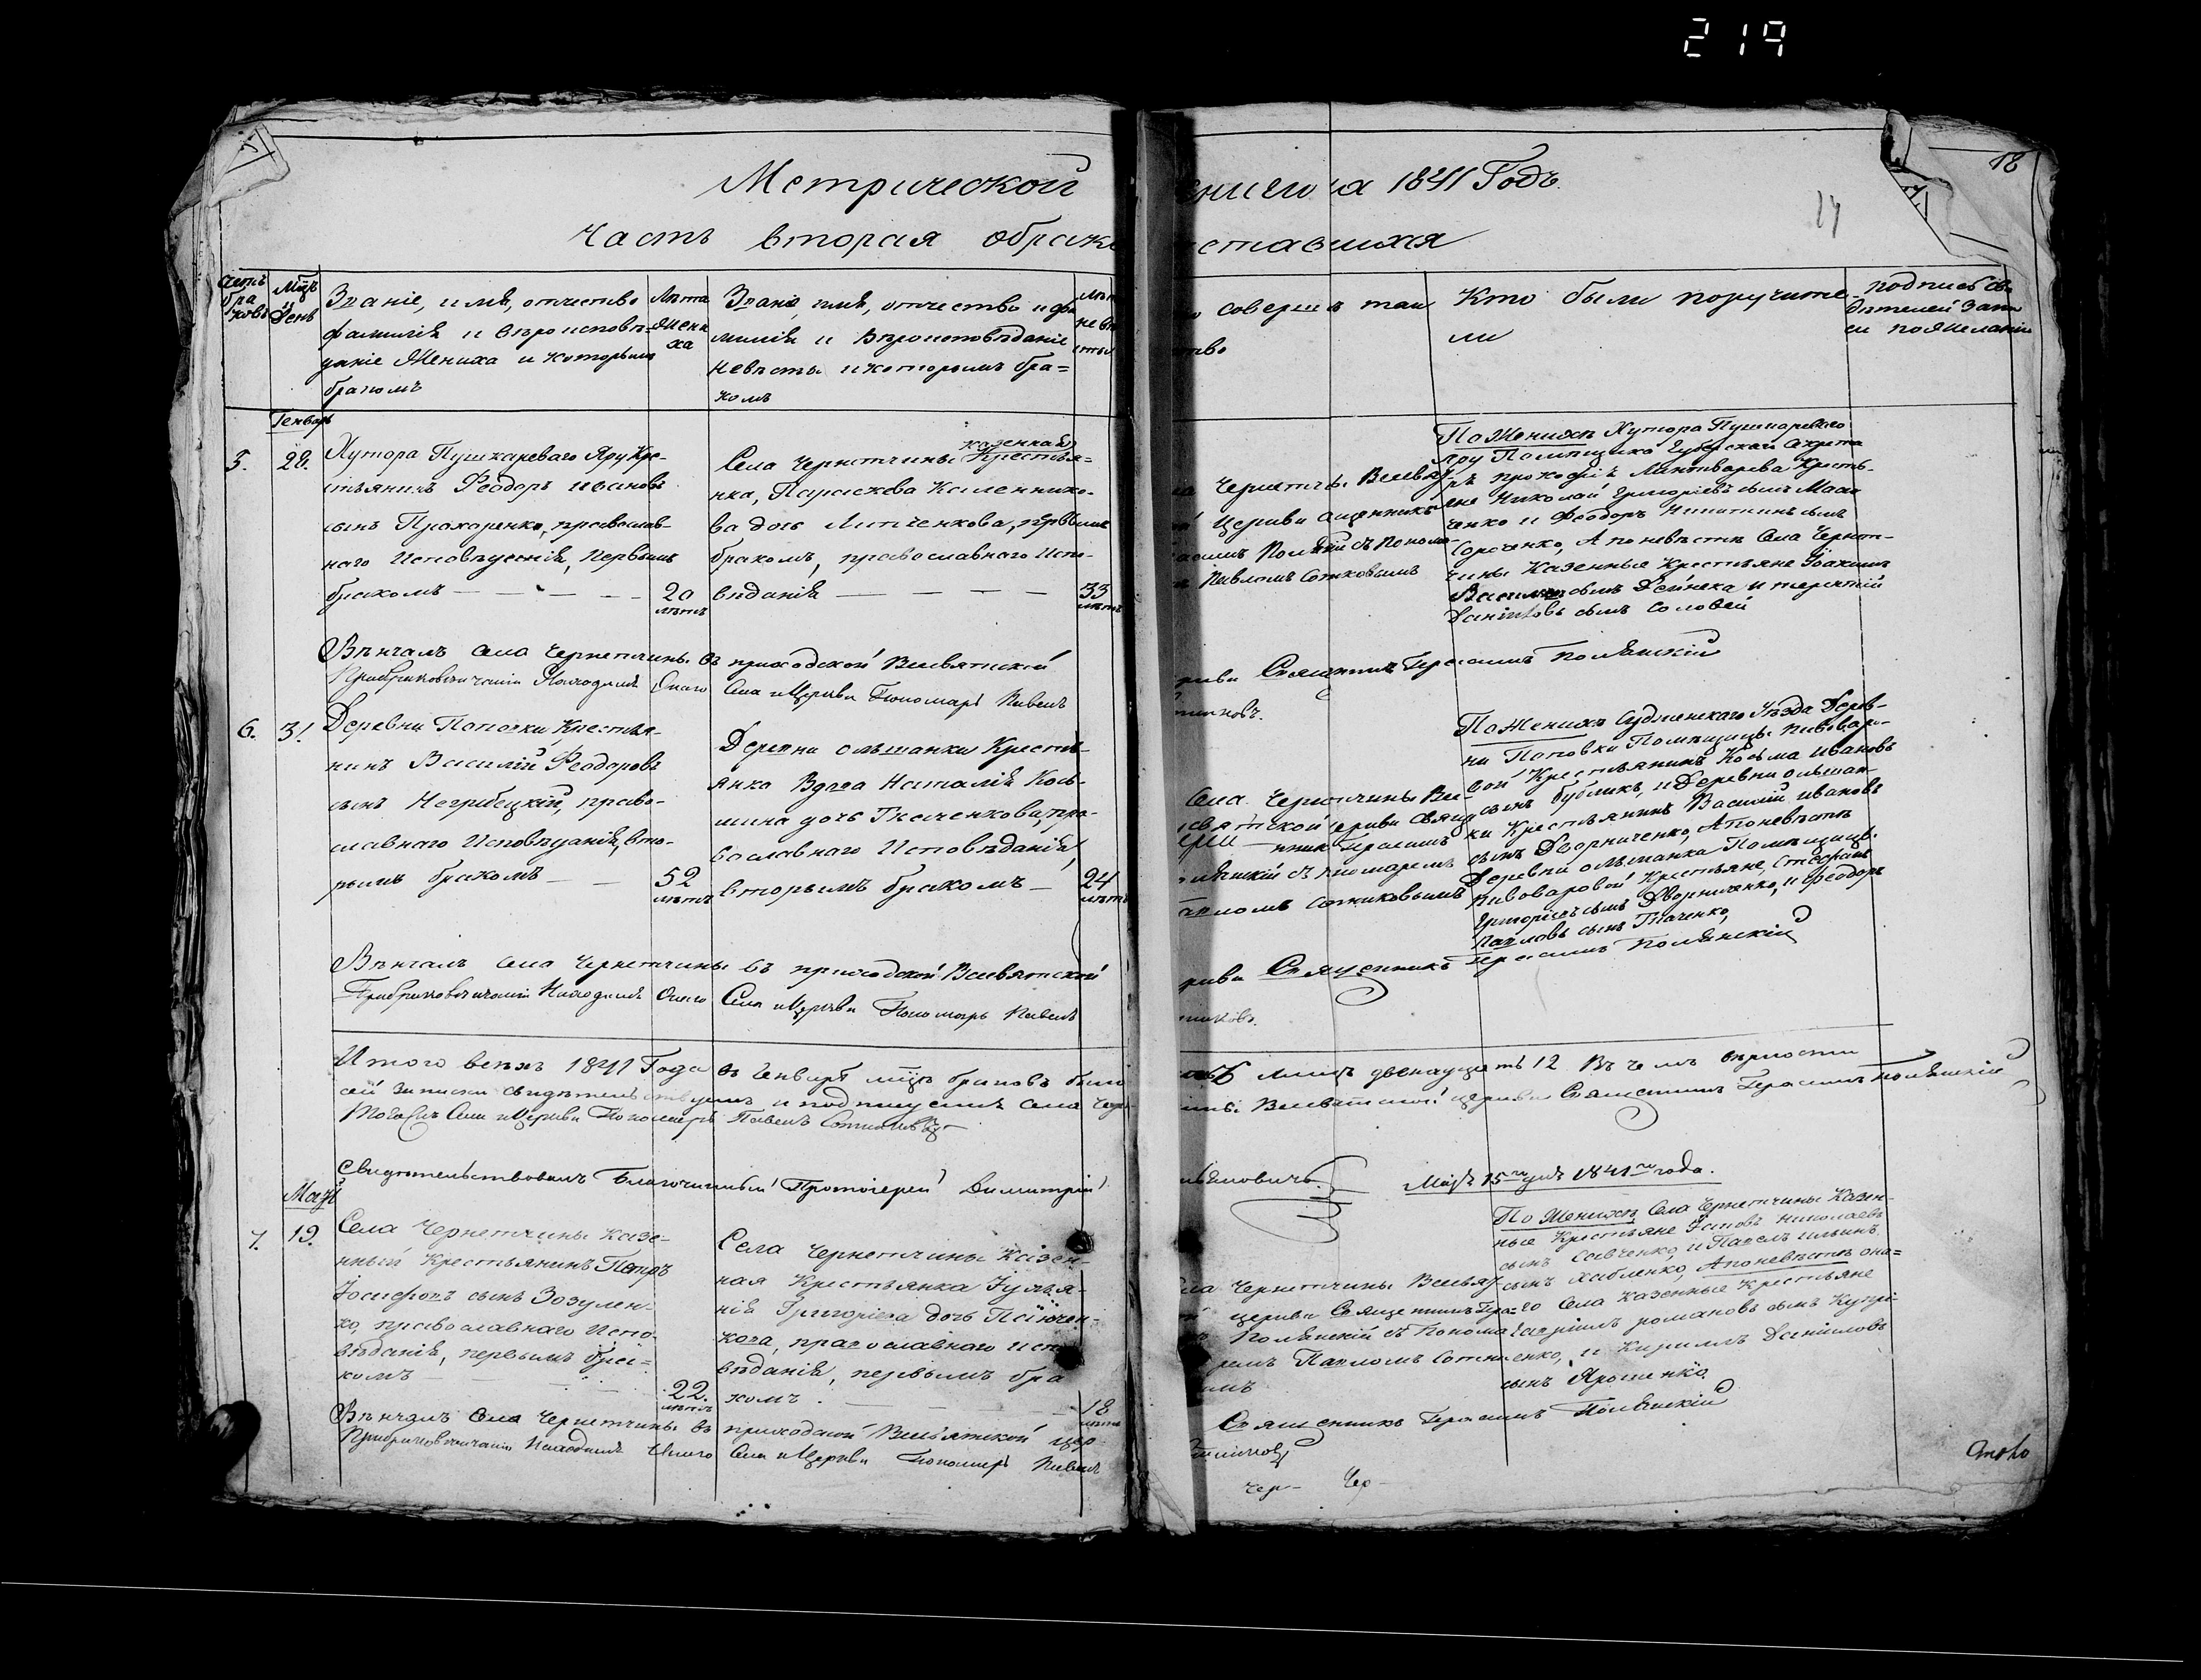 219
18
17
Метрической
ениги на 1841 Годъ.
Часть вторая о брако
четавшихся
Счетъ браковъ
Мцъ и День
Званіе, имя, отчество
фамилія и вѣроисповѣ=
даніе Жениха и которымъ
бракомъ
Лѣта Жениха
Званіе, имя, отчество и фа
милія и вѣроисповѣданіе
невѣсты и которымъ бра=
комъ
совершъ таин
ство
Кто были поручите-
ли
подпись сви
дѣтелей запи
си по желанію
Генварь
5.
28.
Хутора Пушкареваго Яру Кре-
стьянинъ Феодоръ Ивановъ
сынъ Прохоренко, православ-
наго Исповѣданія, Первымъ
бракомъ
20
лѣтъ
казенная
Села Чернетчины Крестья=
нка, Параскева
ва дочь первымъ
бракомъ, православнаго Испо-
вѣданія
33
лѣтъ
Чернетчи Всесвят-
Церкви Священникъ
Поляйскій съ Понома-
Павломъ Сотниковымъ
По Женихѣ Хутора Пушкареваго
Яру Помѣщика
Кресть-
яне Николай Григоріевъ сынъ
ченко и Феодоръ Никитинъ сынъ
Сороченко, А по невѣстѣ Села Чернет-
чины Казенные Крестьяне Іоакимъ
сынъ Дейнека и терентій
Даніиловъ сынъ Соловей
Вѣнчалъ Села Чернетчины въ приходской Всесвятской
Священникъ Герасимъ Полянскій
При Находился Онаго Села и Церкви Пономарь Павелъ
тниковъ.
6.
31.
Деревни Поповки Крестья-
нинъ Василій Феодоровъ
сынъ Негребецкій, право-
славнаго Исповѣданія, вто-
рымъ бракомъ
52
лѣтъ
Деревни ольшанки Кресть-
янка Вдова Наталія Кось-
мина дочь Ткаченкова, пра-
вославнаго Исповѣданія,
вторымъ бракомъ
24
лѣтъ
Села Чернетчины Все-
святской церкви Свящ
нникъ Герасимъ
лянскій съ пономаремъ
Павломъ Сотниковымъ
По Женихѣ Судженскаго Уѣзда Дерев-
ни Поповки Помѣщицы Пивовар-
вой Крестьянинъ Козьма Ивановъ
сынъ бубликъ, и Деревни ольшан-
ки Крестьянинъ Василій Ивановъ
сынъ Дворниченко, А по невѣстѣ
Деревни ольшанка Помѣщицы
Пивоваровой Крестьяне, Стефанъ
Григоріевъ сынъ Дворниченко, и Феодоръ
Павловъ сынъ Ткаченко,
Вѣнчалъ Села Чернетчины въ приходской Всесвятской
ркви Священникъ Герасимъ Полянскій
При Находился Онаго Села и Церкви Пономарь Павелъ
тниковъ.
Итого всехъ 1841 Года въ Генварѣ мцѣ браковъ было
6 лицъ двенадцать 12. Въ чемъ вѣрности
сей записки свидѣтельствуемъ и подписуемъ Села Черн
Всесвятской церкви Священникъ Герасимъ Полянскій
Тогожъ Села и Церкви Пономарь Павелъ Сотниковъ
Свидѣтельствовалъ Благочинный Протоіерей Димитрій
ьяновичъ.
Маія 15го дня 1841го года.
Маій
7.
19.
Села Чернетчины Казе-
нный Крестьянинъ Петръ
Іосифовъ сынъ Зозулен-
ко, православнаго Испо-
вѣданія, первымъ бра=
комъ
22.
лѣтъ
Села Чернетчины Казен-
ная Крестьянка Іуліа-
нія Григоріева дочь
кова, православнаго испо
вѣданія, первымъ бра
комъ
18
лѣтъ
Села Чернетчины Всесвят-
церкви Священникъ Гера=
Полянскій съ Понома
ремъ Павломъ Сотни
ымъ
По Женихѣ Села Чернетчины Казен-
ные Крестьяне Іаковъ Николаевъ
сынъ Савченко, и Павелъ Ильинъ
сынъ Хабленко, А по невѣстѣ она=
го Села Казенные Крестьяне
Гавріилъ романовъ сынъ Купрі-
енко, и Кириллъ Даніиловъ
сынъ Ярошенко.
Вѣнчалъ Села Чернетчины въ приходской Всесвятской цер
Священникъ Герасимъ Полянскій
При Находился Онаго Села и Церкви Пономарь Павелъ
тниковъ
Чер- Чер-